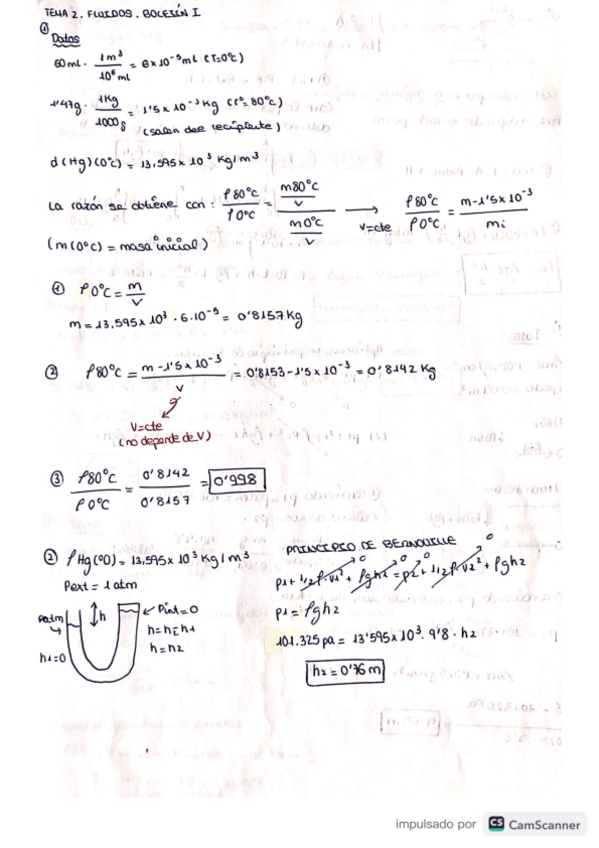 TEMA 2. FLUIDOS. BOLETÍN I
①
Datos
60 ml · 1m³/10⁶ml = 6×10⁻⁵ml (T=0°C)
1'47g · 1Kg/1000g = 1'5×10⁻³Kg (T=80°C)
(salen del recipiente)
d(Hg)(0°C) = 13,595×10³ Kg/m³
La razón se obtiene con: ρ80°C/ρ0°C = (m80°C/V)/(m0°C/V) → V=cte ρ80°C/ρ0°C = (m-1'5×10⁻³)/mi
(m(0°C) = masa inicial)
① ρ0°C = m/V
m = 13,595×10³ · 6·10⁻⁵ = 0'8157Kg
② ρ80°C = (m-1'5×10⁻³)/V = 0'8153-1'5×10⁻³ = 0'8142 Kg
V=cte
(no depende de V)
③ ρ80°C/ρ0°C = 0'8142/0'8157 = 0'998
② ρHg(0°) = 13,595×10³Kg/m³
Pext = 1atm
Patm
h
Pint=0
h=h2-h1
h=h2
h1=0
PRINCIPIO DE BERNOUILLE
p1 + 1/2ρ·v1² + ρgh1 = p2 + 1/2ρ·v2² + ρgh2
0 0 0 0
p1 = ρgh2
101.325pa = 13'595×10³ · 9'8 · h2
h2 = 0'76m
impulsado por CS CamScanner